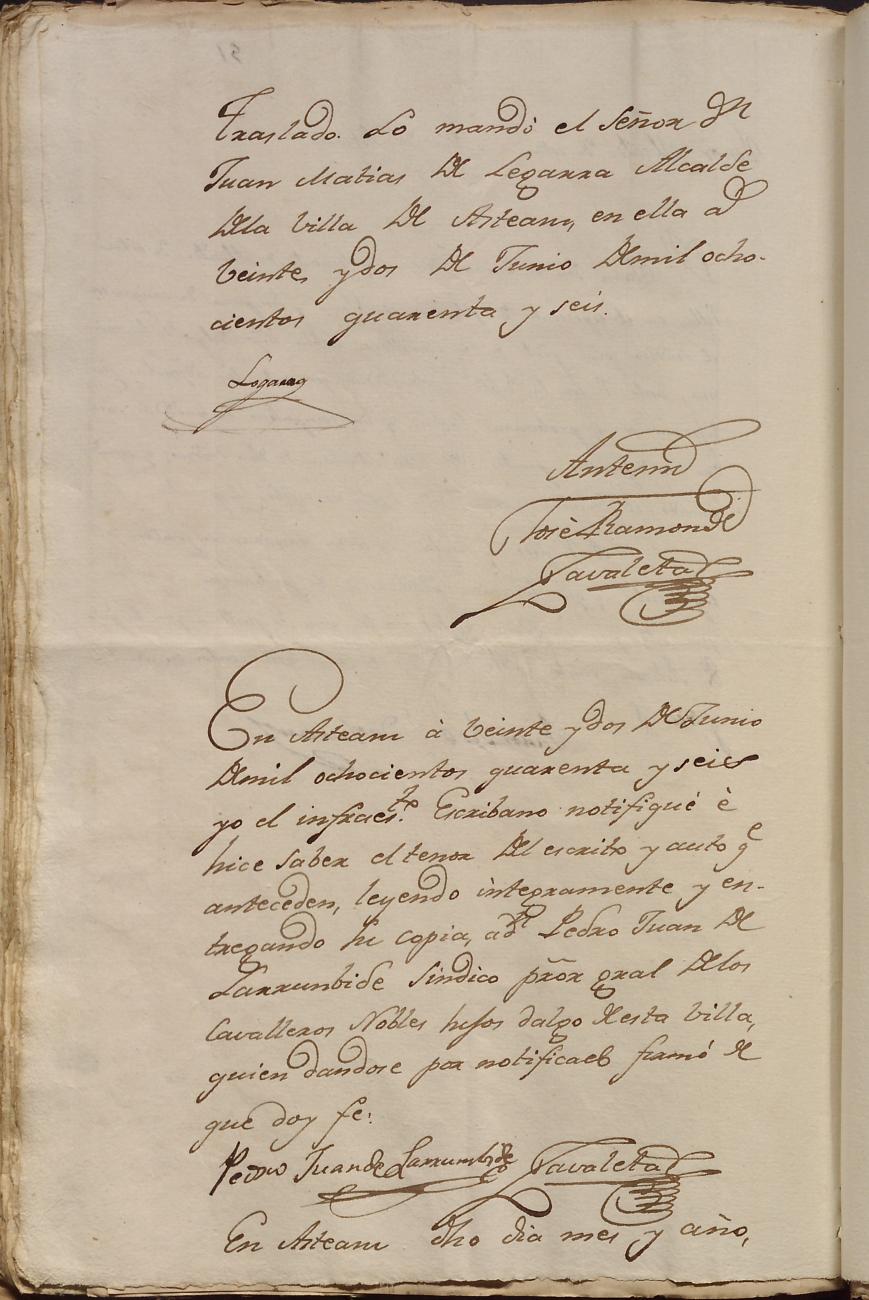 Traslado. Lo mandò el Señor Dn
Juan Matias De Legarra Alcalde
Dela Villa De Asteasu, en ella a
Veinte ydos De Junio Demil ocho-
cientos quarenta y seis.
Legarra
Antemi
Josè Ramon de
Zavaleta
En Asteasu à Veinte ydos De Junio
Demil ochocientos quarenta y seis
yo el infraesto. Escribano notifiqué è
hice saber el tenor Del escrito y auto qe
anteceden, leyendo integramente y en-
tregando su copia, a Dn Pedro Juan De
Larrumbide Sindico prõr gral Delos
Cavalleros Nobles hijos dalgo Desta Villa,
quien dandose por notificado firmó de
que doy fe:
Pedro Juan de Larrumbide Zavaleta
En Asteasu dho dia mes y año,